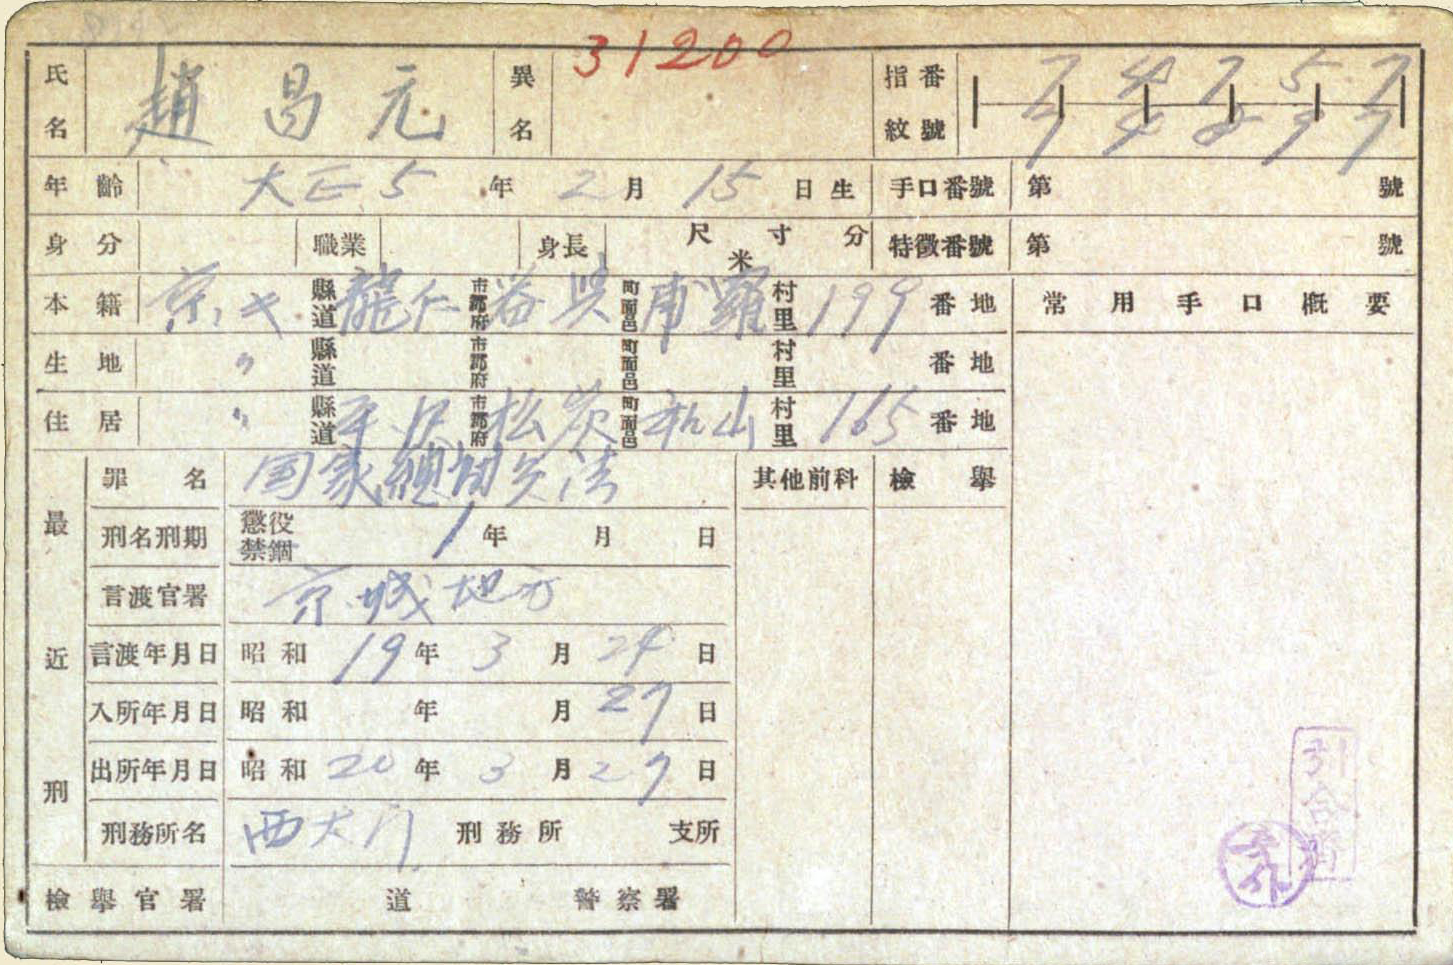 31200
氏名 趙昌元 異名 指紋番號 7 4 7 5 7
7 4 8 9 7
年齡 大正5年2月15日生 手口番號 第 號
身分 職業 身長 尺寸分 米 特徵番號 第 號
本籍 京キ 縣道 龍仁 市郡府 器興 町面邑 甫羅 村里 199 番地 常用手口概要
生地 〃 縣道 市郡府 町面邑 村里 番地
住居 〃 縣道 平沢 市郡府 松炭 町面邑 和山 村里 165 番地
最近刑
罪名 国家總動員法 其他前科 檢擧
刑名刑期 懲役 禁錮 1年 月 日
言渡官署 京城地方
言渡年月日 昭和19年3月24日
入所年月日 昭和 年 月27日
出所年月日 昭和20年3月27日
刑務所名 西大門 刑務所 支所
檢擧官署 道 警察署
引合濟